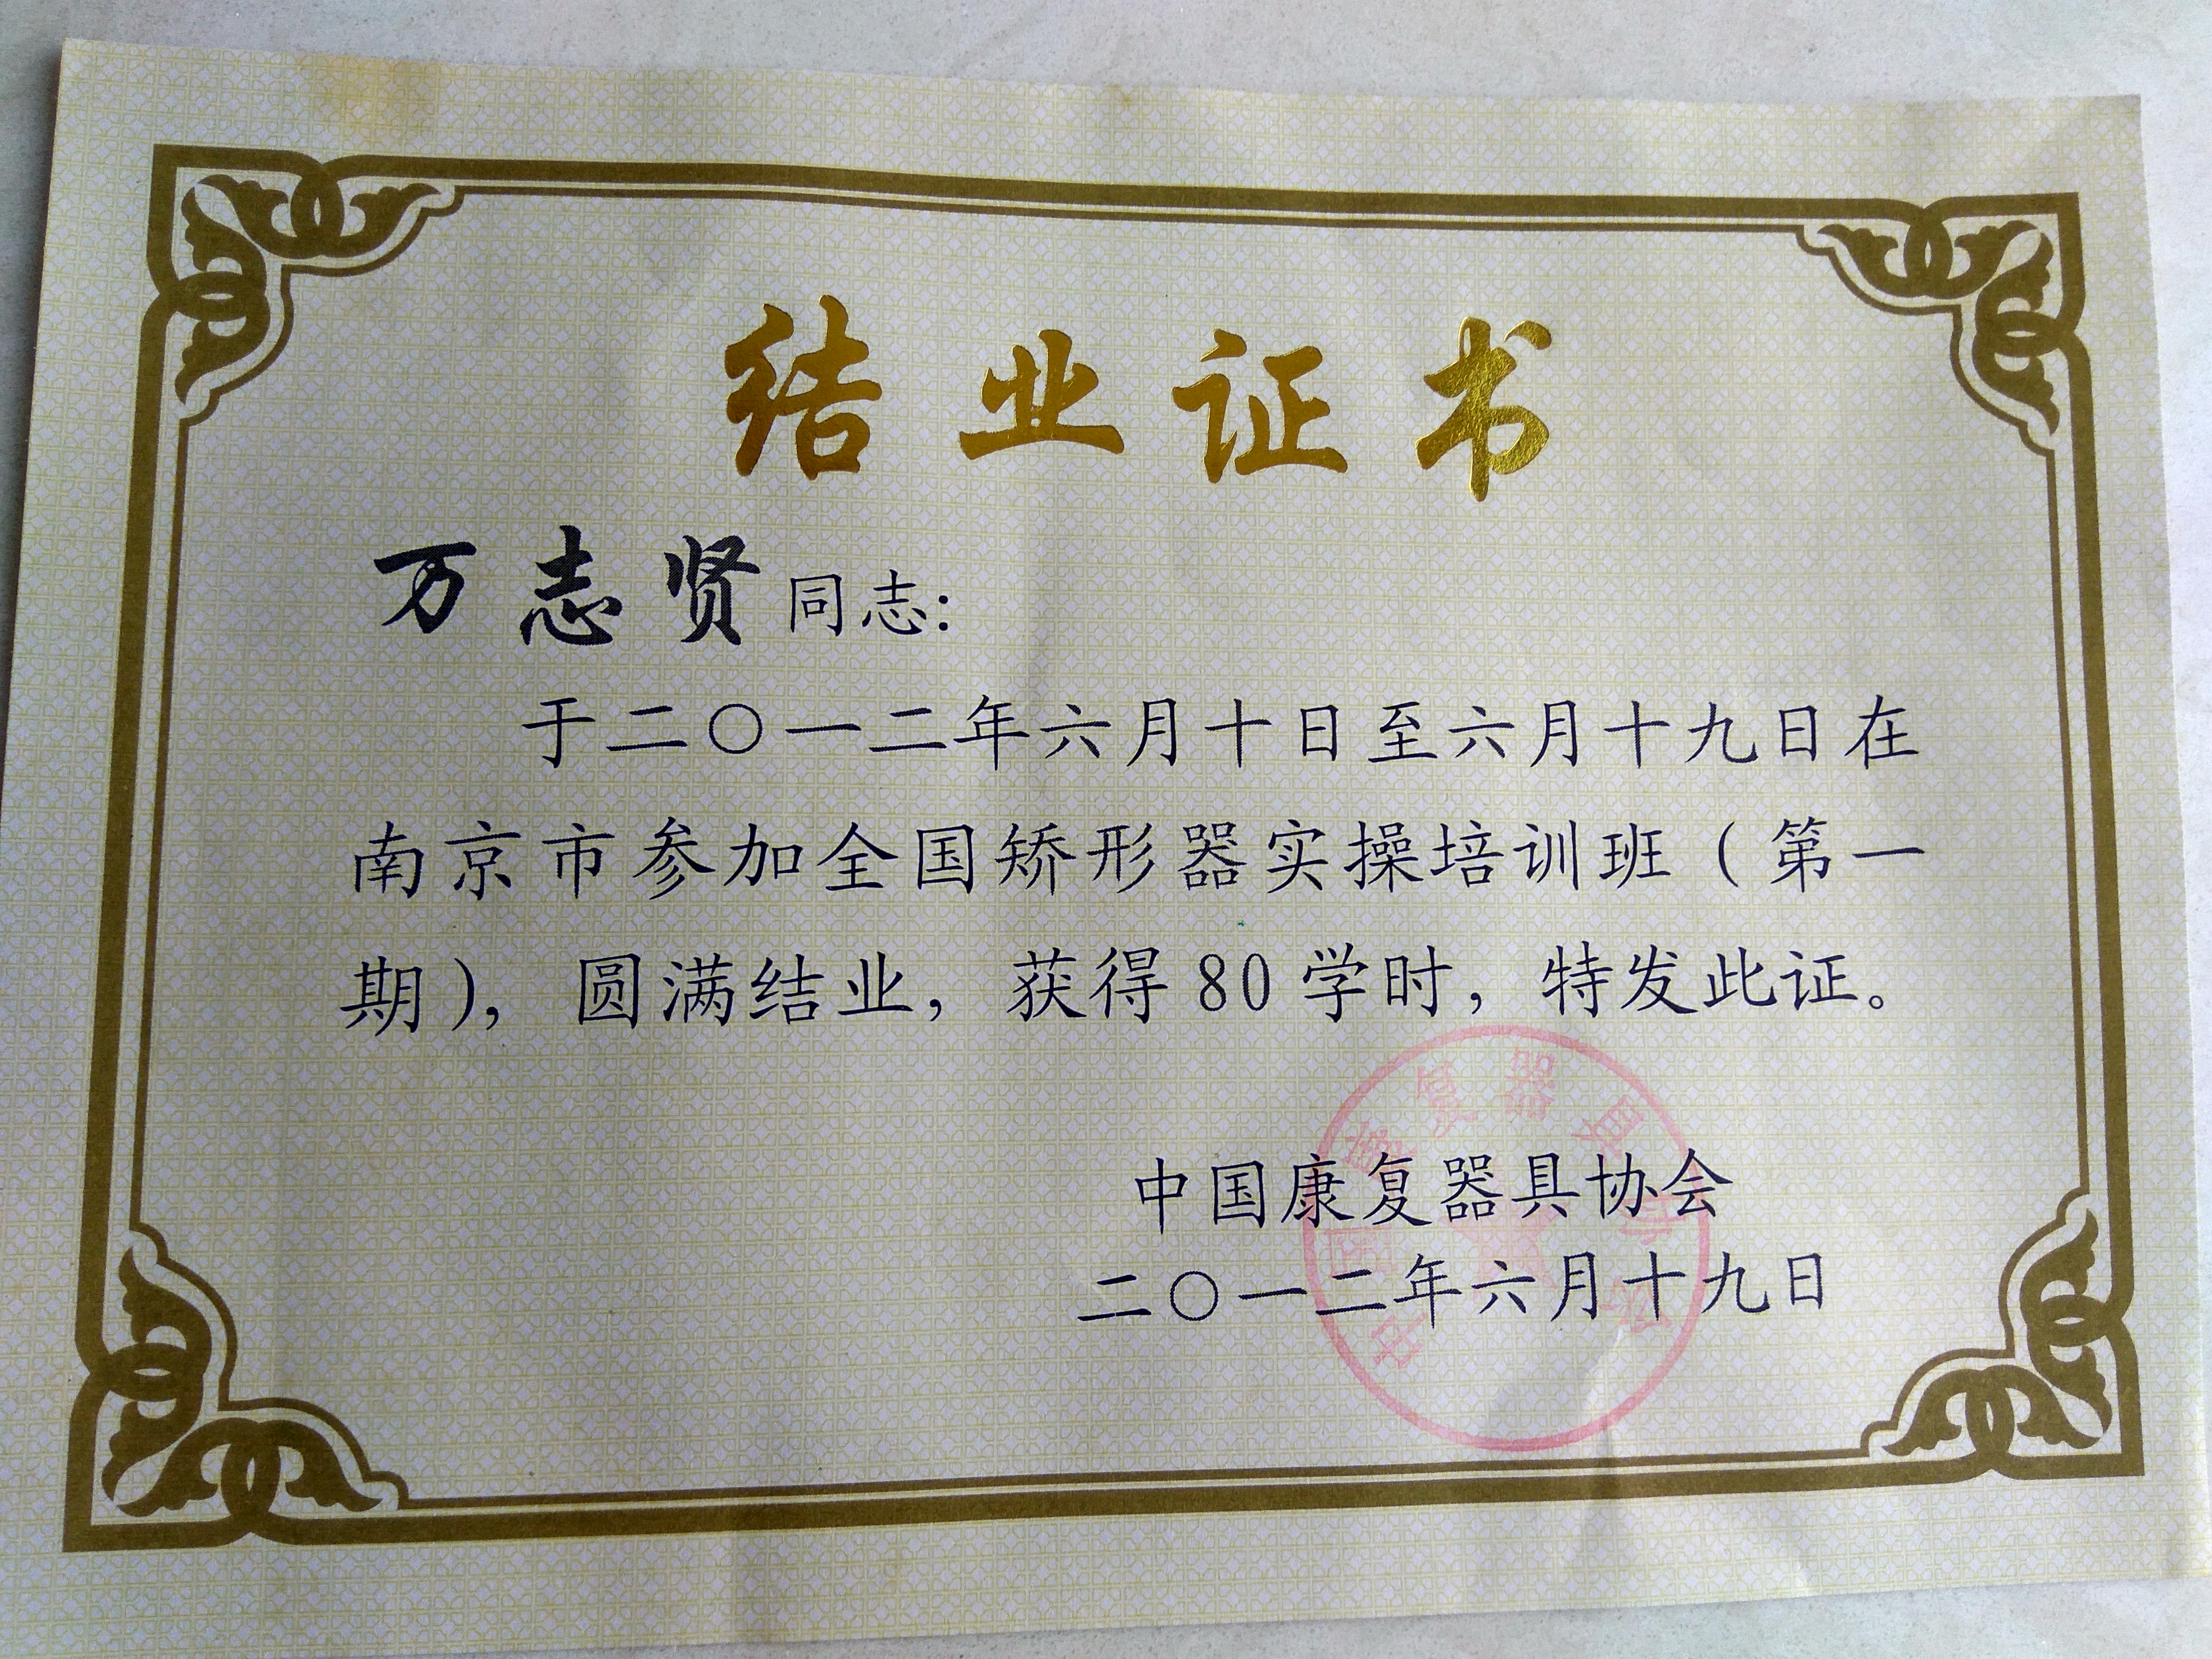 结业证书
万志贤同志：
于二〇一二年六月十日至六月十九日在
南京市参加全国矫形器实操培训班（第一
期），圆满结业，获得80学时，特发此证。
中国康复器具协会
二〇一二年六月十九日
中国康复器具协会